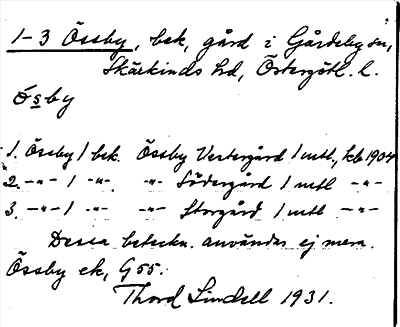 1-3 Össby, bek, gård i Gårdeby sn,
Skärkinds hd, Östergötl. l.
ósby
1. Össby 1 bek. Össby Vestergård 1 mtl, kb 1904
2. -"- 1 -"- -"- Södergård 1 mtl -"-
3. -"- 1 -"- -"- Storgård 1 mtl -"-
Dessa beteckn. användas ej mera.
Össby ek, G 55.
Thord Lindell 1931.